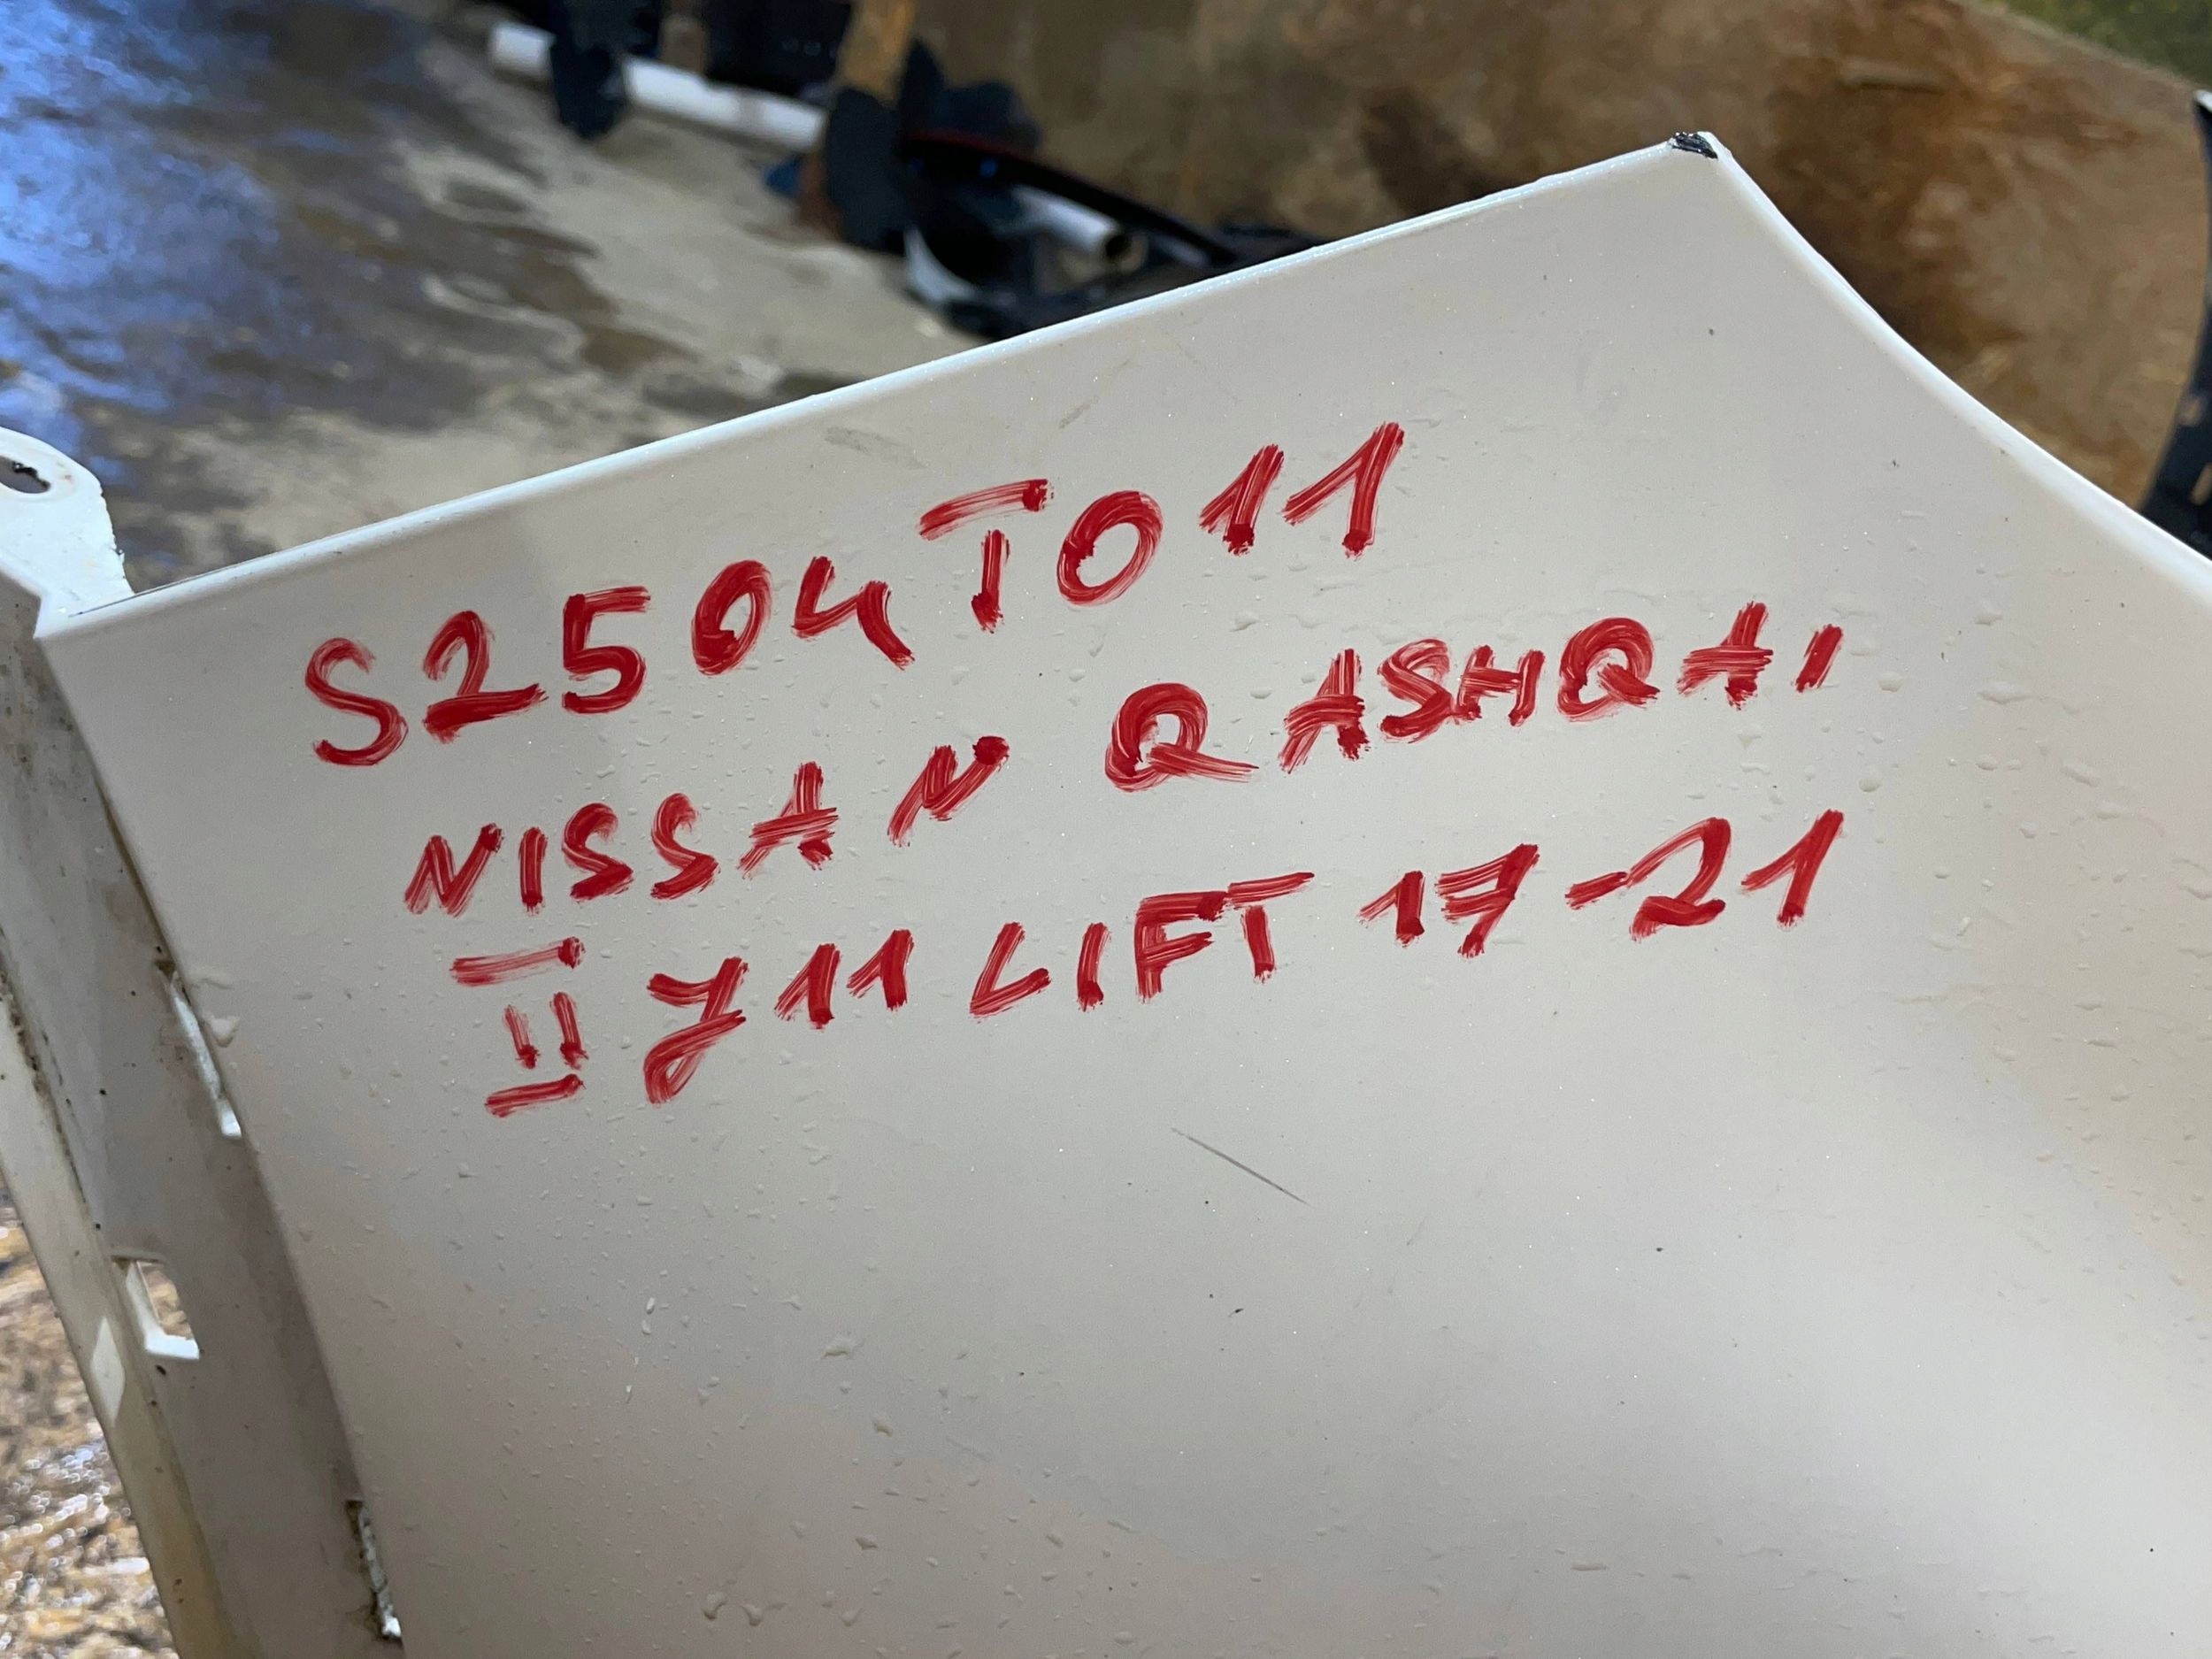 S2504T011
NISSAN QASHQAI
II J11 LIFT 17-21